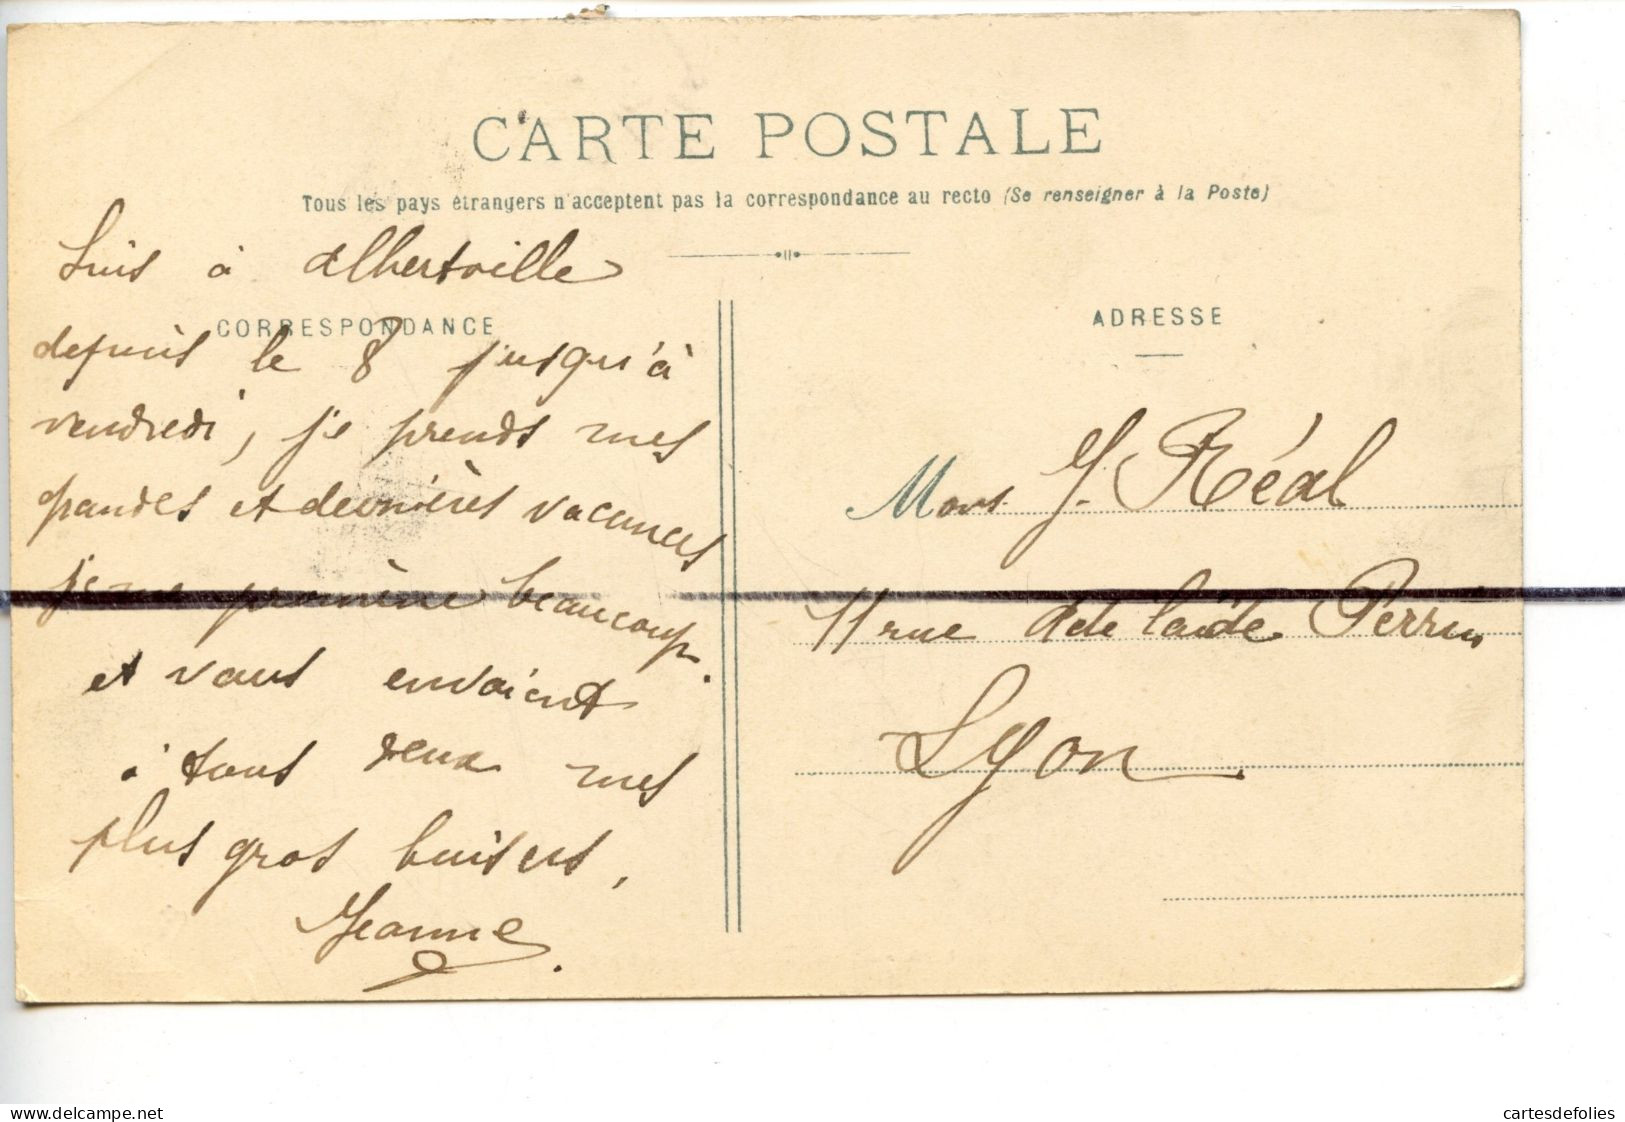 CARTE POSTALE
Tous les pays étrangers n'acceptent pas la correspondance au recto (Se renseigner à la Poste)
CORRESPONDANCE
Suis à Albertville
depuis le 8 jusqu'à
vendredi, je prends mes
grandes et dernières vacances
je me promène beaucoup.
et vous envoient
à tous deux mes
plus gros baisers,
Jeanne.
ADRESSE
Mons. J. Réal
11 rue Adelaïde Perrin
Lyon
www.delcampe.net
cartesdefolies